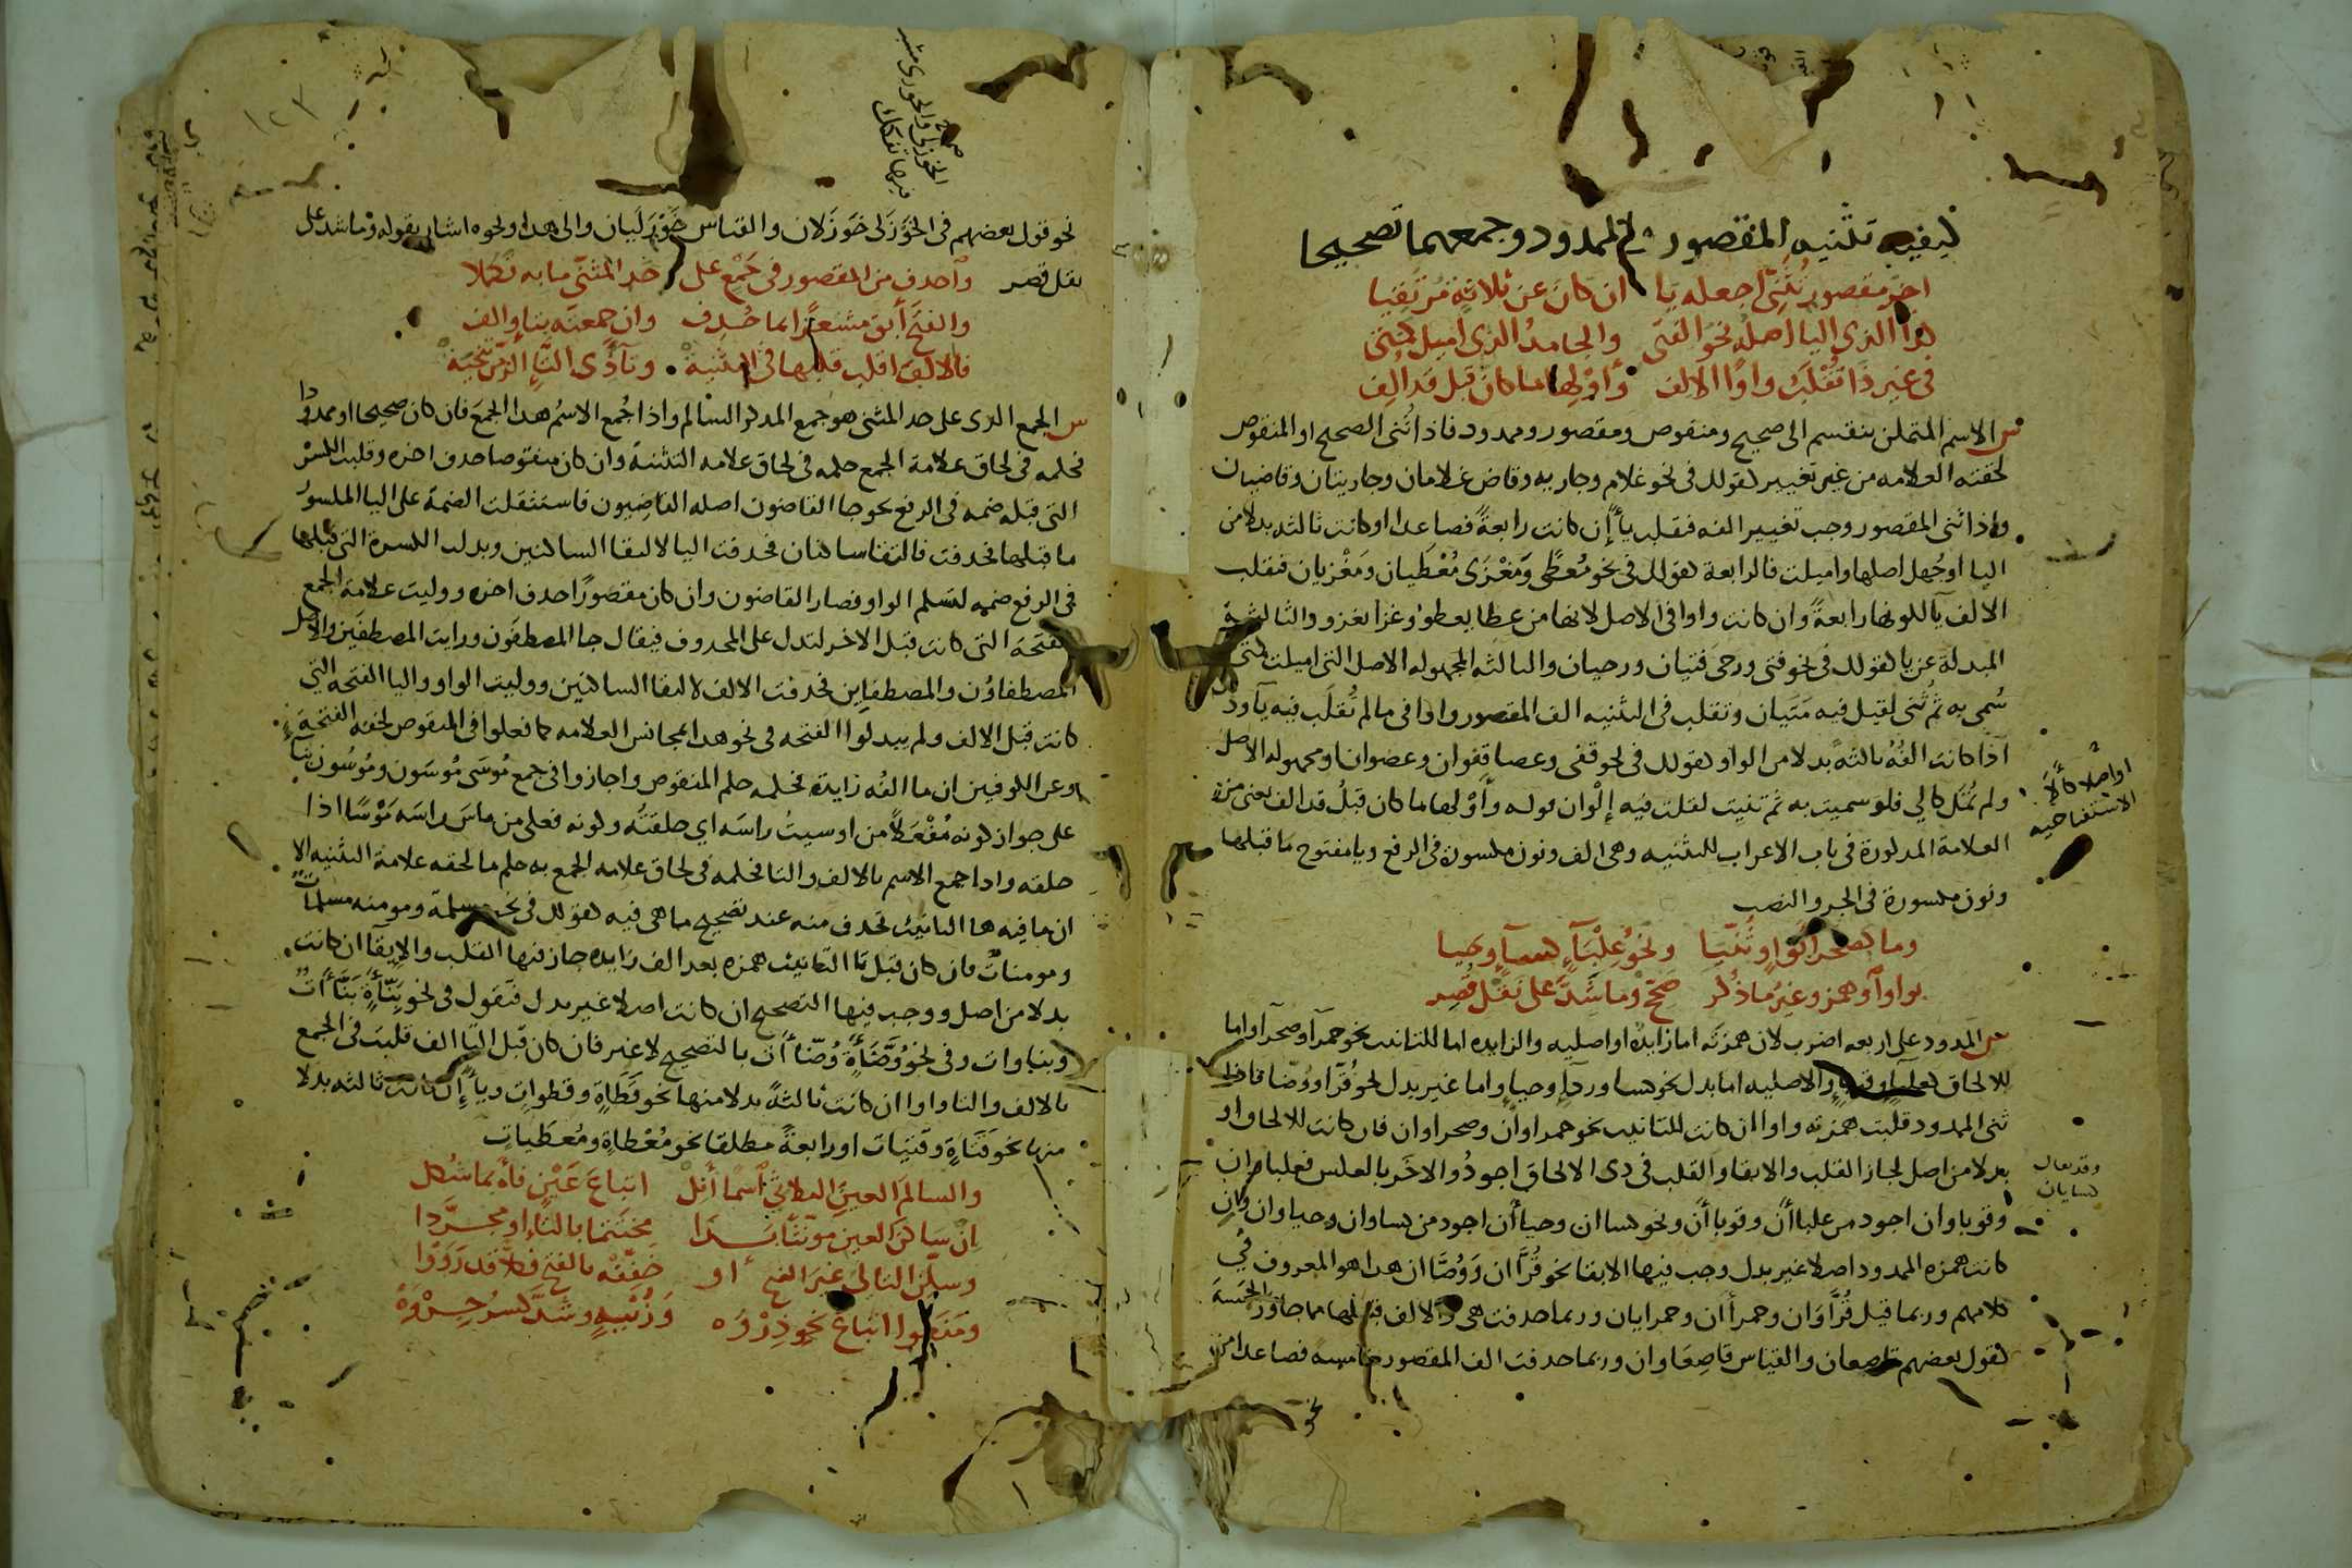 كيفيه تثنيه المقصور والممدود وجمعهما تصحيحا
اخر مقصور تثني اجعله يا ان كان عن ثلاثة مرتقيا
كذا الذي اليا اصله نحو الفتى والجامد الذي اميل كمتى
في غير ذا تقلب واوا الالف وأولها ما كان قبل قد الف
ش الاسم المتمكن ينقسم الى صحيح ومنقوص ومقصور وممدود فاذا ثنى الصحيح او المنقوص
لحقته العلامه من غير تغيير كقولك في نحو غلام وجاريه وقاض غلامان وجاريتان وقاضيان
واذا ثنى المقصور وجب تغيير الفه فتقلب ياً إن كانت رابعةً فصاعدا او كانت ثالثه بدلا من
اليا او جُهل اصلها واميلت فالرابعة كقولك في نحو مُعطًى ومَغْزَى مُعْطَيان ومَغْزيان فتقلب
الالف يآ لكونها رابعةً وان كانت واوا في الاصل لانها من عطا يعطوُ وغزا يغزو والثالثة
المبدلة عن يا كقولك في نحو فتى ورحى فتيان ورحيان والثالثه المجهوله الاصل التي اميلت كمتى
سُمى به ثم ثنى لقيل فيه مَتَيان وتقلب في التثنيه الف المقصور واوا في ما لم تُقلَب فيه يآ وذلك
اذا كانت الفُهُ ثالثهً بدلا من الواو كقولك في نحو قفى وعصا قفوان وعصوان او مجهوله الاصل
ولم تُمَل كالى فلو سميت به ثم ثنيت لقلت فيه إلَوان قوله وأوْلها ما كان قبلُ قد الف يعنى من
العلامة المذكورة في باب الاعراب للتثنيه وهى الف ونون مكسورة في الرفع ويا مفتوح ما قبلها
ونون مكسورة في الجر والنصب
اواصلا كألا
الاستفتاحيه
وما كصحراءَ بواوٍ ثُنّيَا ونحوُ عِلْبَآءٍ كسآءٍ وحيا
بواوٍ آو همز وغيرُ ما ذُكر صحّح وما شذّ على نقل قُصِر
ش الممدود على اربعه اضرب لان همزته اما زايدة او اصليه والزايده اما للتانيث نحو حمرآ وصحرآ واما
للالحاق كعلباء وقوباء والاصليه اما بدل نحو كسا وردآءٍ وحياءٍ واما غير بدل نحو قُرّاء ووُضّا فاذا
ثنى الممدود قلبت همزته واوا ان كانت للتانيث نحو حمراوان وصحراوان فان كانت للالحاق او
بدلا من اصل لجاز القلب والابقا والقلب في ذى الالحاق اجودُ والاخَر بالعكس فعلباوان
وقوباوان اجود من علباأن وقوباأن ونحو كساان وحياأن اجود من كساوان وحياوان وإن
كانت همزه الممدود اصلا غير بدل وجب فيها الابقا نحو قُرّاان ووُضّاان هذا هو المعروف في
كلامهم وربما قيل قُرّاوَان وحمرأان وحمرايان وربما حذفت هي والالف قبلها مما جاوز الخمسة
كقول بعضهم قاصعان والقياس قاصعَاوان وربما حذفت الف المقصور خامسه فصاعدا من
وقد يقال
كسايان
نحو
الخوزلى والخوزرى مشية
فيها تفكك
صح
نحو قول بعضهم في الخَوْزَلى خَوزَلان والقياس خَوْزَلَيان والى هذا ونحوه اشار بقوله وما شذ على
نقل قصر واحذف من المقصور في جَمْع على حدّ المثنّى ما به تكمّلا
والفتحَ أبق مشعرًا بما حُذِف وان جمعته بتاءٍ والف
فالالفَ اقلب قلبها في التثنيهْ وتآءَ ذي التاءِ الزمن تنحيَهْ
ش الجمع الذى على حد المثنى هو جمع المذكر السالم واذا جُمع الاسمُ هذا الجمعَ فان كان صحيحا او ممدودا
فحكمه في لحاق علامة الجمع حكمه في لحاق علامه التثنية وان كان منقوصا حذف اخره وقلبت الكسرُ
التي قبله ضمه في الرفع نحو جا القاضون اصله القاضِيون فاستثقلت الضمة على اليا المكسورُ
ما قبلها فحذفت فالتقا ساكنان فحذفت اليا لالتقا الساكنين وبدلت الكسرة التي قبلها
في الرفع ضمه لتسلم الواو فصار القاضون وان كان مقصورًا حذف اخره ووليت علامة الجمع
الفتحَة التي كانت قبل الاخر لتدل على المحذوف فيقال جا المصطفَون ورايت المصطفَين والاصل
المصطفاوْن والمصطفاين فحذفت الالف لالتقا الساكنين ووليت الواو واليا الفتحه التي
كانت قبل الالف ولم يبدلوا الفتحه في نحو هذا بمجانس العلامه كما فعلوا في المنقوص لخفه الفتحة
وعن الكوفيين ان ما الفُه زايدة فحكمه حكم المنقوص واجازوا في جمع مُوسَى مُوسَون ومُوسُون بناءً
على جواز كونه مُفْعَلاً من اوسيتُ راسَه اي حلقتُه وكونه فعلى من ماسَ راسَه مَوْسًا اذا
حلقه واذا جمع الاسم بالالف والتا فحكمه في لحاق علامه الجمع به حكم ما لحقه علامة التثنيه الا
ان ما فيه ها التانيث تحذف منه عند تصحيح ما هى فيه كقولك في نحو مسلمة ومومنه مسلمآت
ومومناتٌ فان كان قبل تا التانيث همزه بعد الف زايده جاز فيها القلب والابقآ ان كانت
بدلا من اصل ووجب فيها التصحيح ان كانت اصلا غير بدل فتقول في نحو بنّاءَةٍ بَنّأأتٌ
وبناوات وفي نحو وُضّاءَةٍ وُضّاأت بالتصحيح لا غير فان كان قبل التا الف قلبت في الجمع
بالالف والتا واوا ان كانت ثالثةً بدلا منها نحو قَطَاةٍ وقطوات وياً إن كانت ثالثه بدلا
منها نحو فَتَاةٍ وفتيات او رابعةً مطلقا نحو مُعْطاةٍ ومُعطَيات
والسالمَ العينِ الثلاثي اسْمًا أَنِلْ اتباعَ عَيْنٍ فاءَه بما شُكل
إنْ ساكنَ العين مونّثًا بَدَا مختتما بالتاء او مجرَّدا
وسكّن التاليَ غيرَ الفتح او خفّفْه بالفتح فكلاّ قد رَوَوْا
ومَنعوا اتباعَ نحوِ ذِرْوَه وزُبْيةٍ وشذّ كسرُ جِرْوَهْ